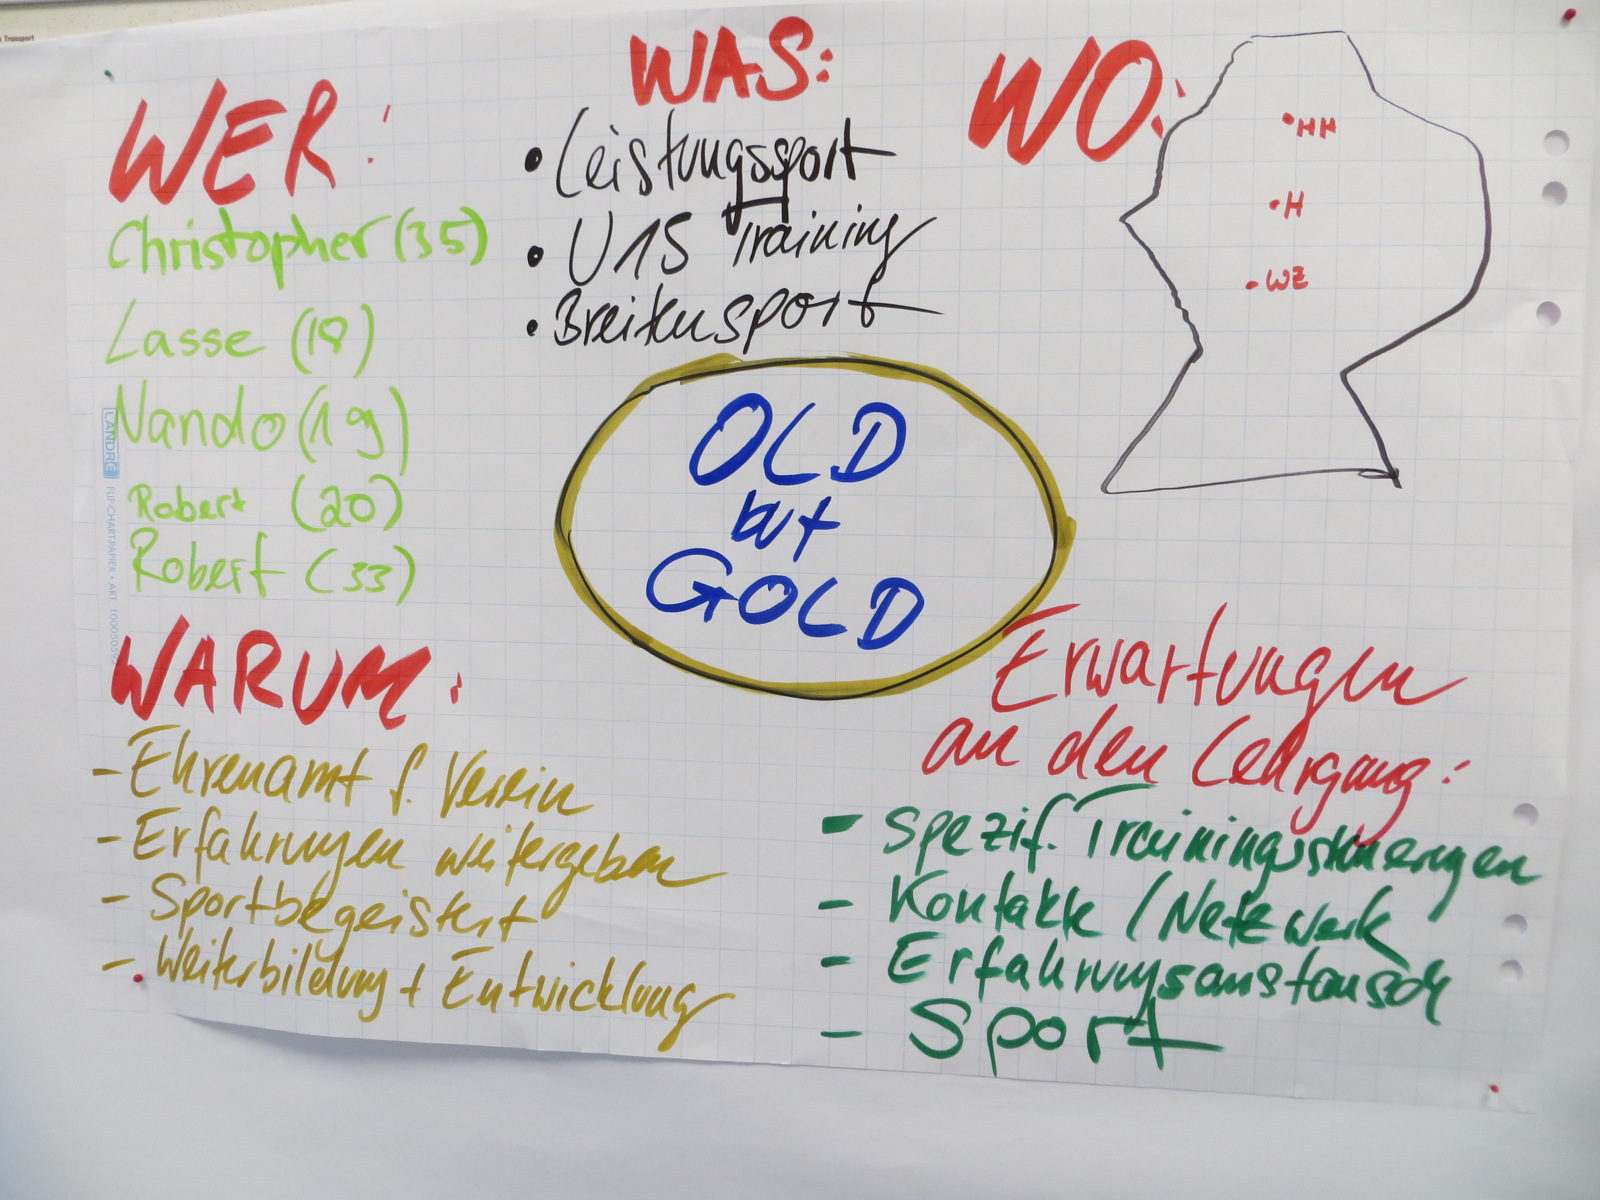 Transport
WER:
Christopher (35)
Lasse (18)
Nando (19)
Robert (20)
Robert (33)
WAS:
• Leistungssport
• U15 Training
• Breitensport
WO:
• HH
• H
• WZ
OLD
but
GOLD
LANDRÉ
FLIPCHARTPAPIER • ART.
WARUM:
- Ehrenamt f. Verein
- Erfahrungen weitergeben
- Sportbegeistert
- Weiterbildung + Entwicklung
Erwartungen
an den Lehrgang:
- spezif. Trainingssteuerungen
- Kontakte / Netzwerk
- Erfahrungsaustausch
- Sport